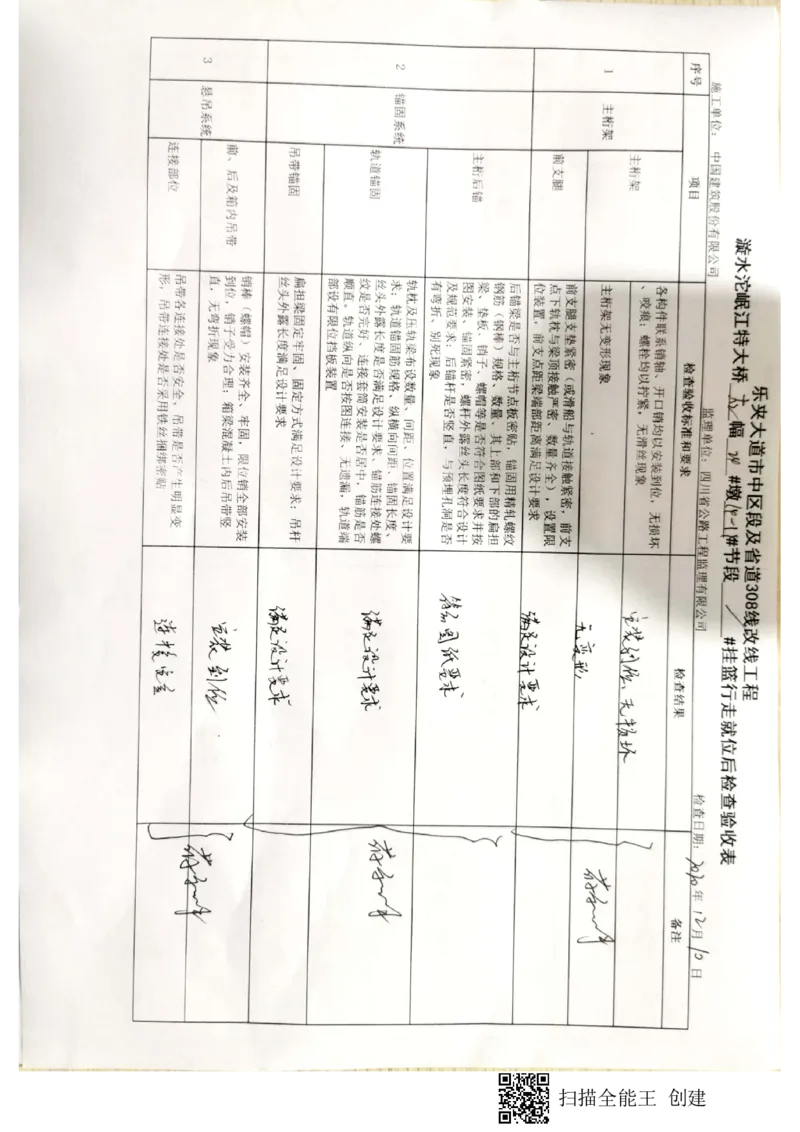 乐夹大道市中区段及省道308线改线工程
漩水沱岷江特大桥 左 幅 #墩 #节段 / #挂篮行走就位后检查验收表
施工单位：中国建筑股份有限公司 监理单位：四川省公路工程监理有限公司 检查日期：2020年12月10日
序号 项目 检查验收标准和要求 检查结果 备注
1 主桁架 主桁架 各构件联系销轴、开口销均以安装到位，无损坏
、咬痕；螺栓均以拧紧，无滑丝现象
安装到位、无损坏
主桁架无变形现象 无变形
前支腿 前支腿支垫紧密（或滑船与轨道接触紧密，前支
点下轨枕与梁顶接触严密、数量齐全），设置限
位装置，前支点距梁端部距离满足设计要求
满足设计要求
2 锚固系统 主桁后锚 后锚梁是否与主桁节点板密贴，锚固用精轧螺纹
钢筋（钢棒）规格、数量、其上部和下部的扁担
梁、垫板、销子、螺帽等是否符合图纸要求并按
图安装、锚固紧密、螺杆外露丝头长度符合设计
及规范要求，后锚杆是否竖直，与预埋孔洞是否
有弯折、别死现象
符合图纸要求
轨道锚固 轨枕及压轨梁布设数量、间距、位置满足设计要
求；轨道锚固筋规格、纵横向间距、锚固长度、
丝头外露长度是否满足设计要求、锚筋连接处螺
纹是否完好、连接套筒安装是否居中，锚筋是否
顺直。轨道纵向是否按图连接、无遗漏，轨道端
部设有限位挡板装置
满足设计要求
吊带锚固 扁担梁固定牢固、固定方式满足设计要求；吊杆
丝头外露长度满足设计要求
满足设计要求
3 悬吊系统 前、后及箱内吊带 销棒（螺帽）安装齐全、牢固，限位销全部安装
到位，销子受力合理；箱梁混凝土内后吊带竖
直，无弯折现象
安装到位
连接部位 吊带各连接处是否安全，吊带是否产生明显变
形；吊带连接处是否采用铁丝捆绑密贴
连接完全
扫描全能王 创建